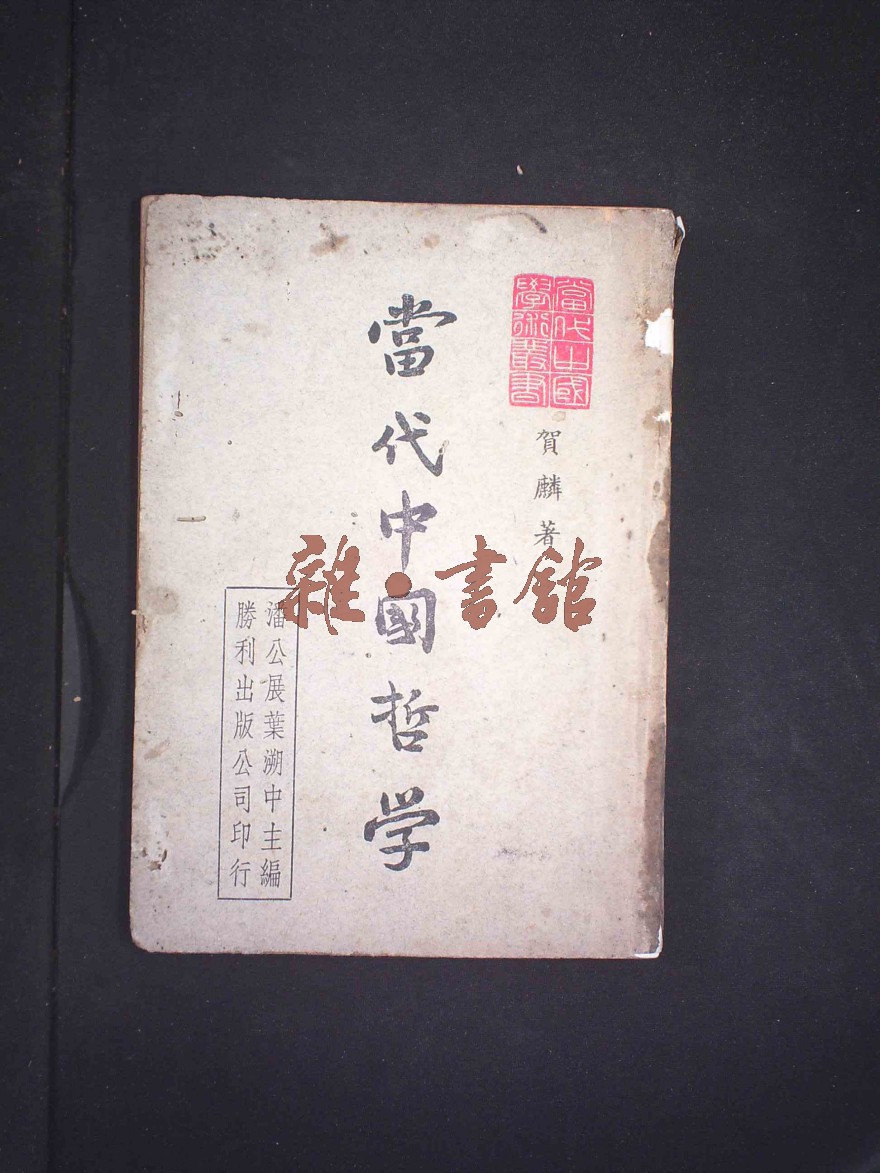 當代中國學術叢書
賀麟著
當代中國哲学
潘公展葉溯中主編
勝利出版公司印行
雜·書館